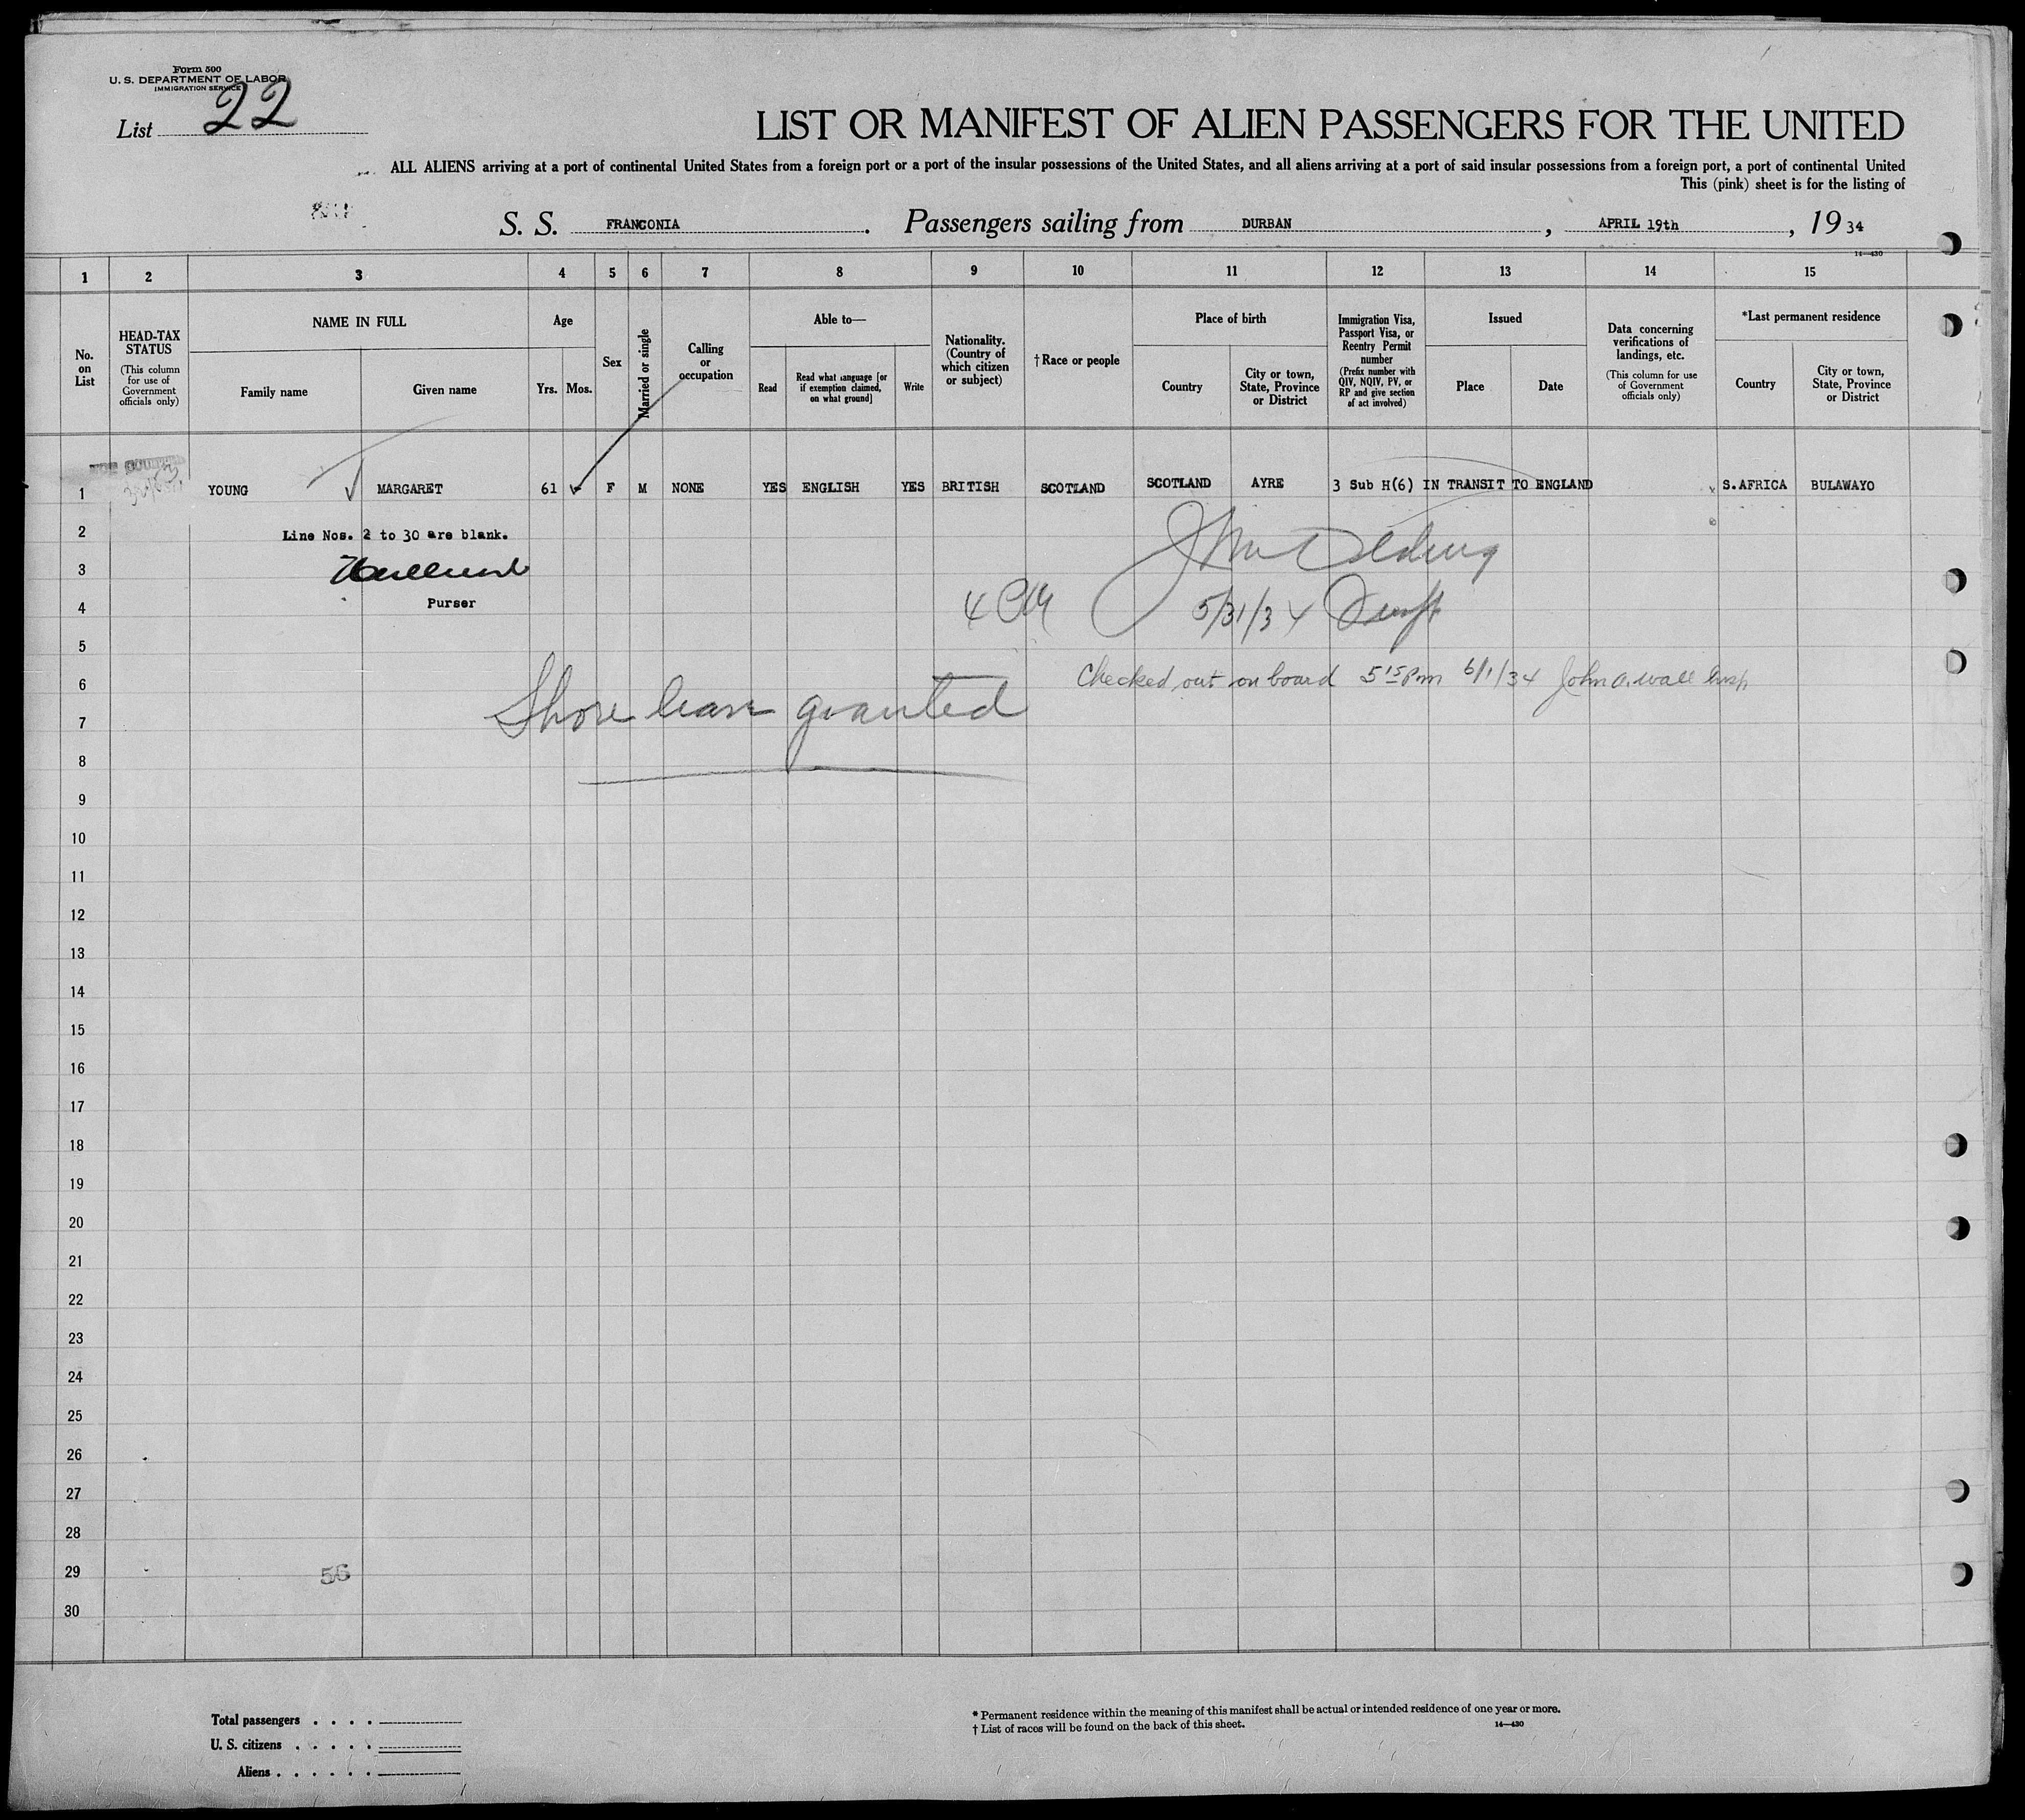 Form 500
U. S. DEPARTMENT OF LABOR
IMMIGRATION SERVICE
List 22
LIST OR MANIFEST OF ALIEN PASSENGERS FOR THE UNITED
ALL ALIENS arriving at a port of continental United States from a foreign port or a port of the insular possessions of the United States, and all aliens arriving at a port of said insular possessions from a foreign port, a port of continental United
This (pink) sheet is for the listing of
S. S. FRANCONIA. Passengers sailing from DURBAN, APRIL 19th, 1934
14—430
1 2 3 4 5 6 7 8 9 10 11 12 13 14 15
No. on List
HEAD-TAX STATUS
(This column for use of Government officials only)
NAME IN FULL
Family name
Given name
Age
Yrs. Mos.
Sex
Married or single
Calling or occupation
Able to—
Read
Read what language [or if exemption claimed, on what ground]
Write
Nationality. (Country of which citizen or subject)
†Race or people
Place of birth
Country
City or town, State, Province or District
Immigration Visa, Passport Visa, or Reentry Permit number
(Prefix number with QIV, NQIV, PV, or RP and give section of act involved)
Issued
Place
Date
Data concerning verifications of landings, etc.
(This column for use of Government officials only)
*Last permanent residence
Country
City or town, State, Province or District
1 YOUNG MARGARET 61 F M NONE YES ENGLISH YES BRITISH SCOTLAND SCOTLAND AYRE 3 Sub H(6) IN TRANSIT TO ENGLAND S.AFRICA BULAWAYO
2 Line Nos. 2 to 30 are blank.
3
4 Purser 4 PM 5/31/34
5
6 Checked out on board 5 15 Pm 6/1/34 John A. Wall Insp.
7 Shore leave granted
8
9
10
11
12
13
14
15
16
17
18
19
20
21
22
23
24
25
26
27
28
29 56
30
Total passengers . . . .
U. S. citizens . . . . .
Aliens . . . . . .
* Permanent residence within the meaning of this manifest shall be actual or intended residence of one year or more.
† List of races will be found on the back of this sheet.
14—430